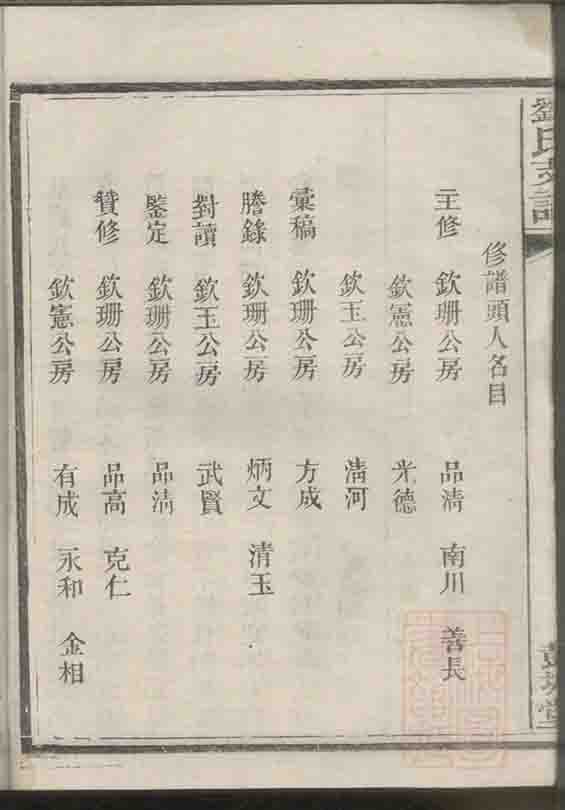 劉氏支譜
彭城堂
修譜頭人名目
主修 欽珊公房 品清 南川 善長
欽憲公房 光德
欽玉公房 清河
彙稿 欽珊公房 方成
謄錄 欽珊公房 炳文 清玉
對讀 欽玉公房 武賢
鑒定 欽珊公房 品清
贊修 欽珊公房 品高 克仁
欽憲公房 有成 永和 金相